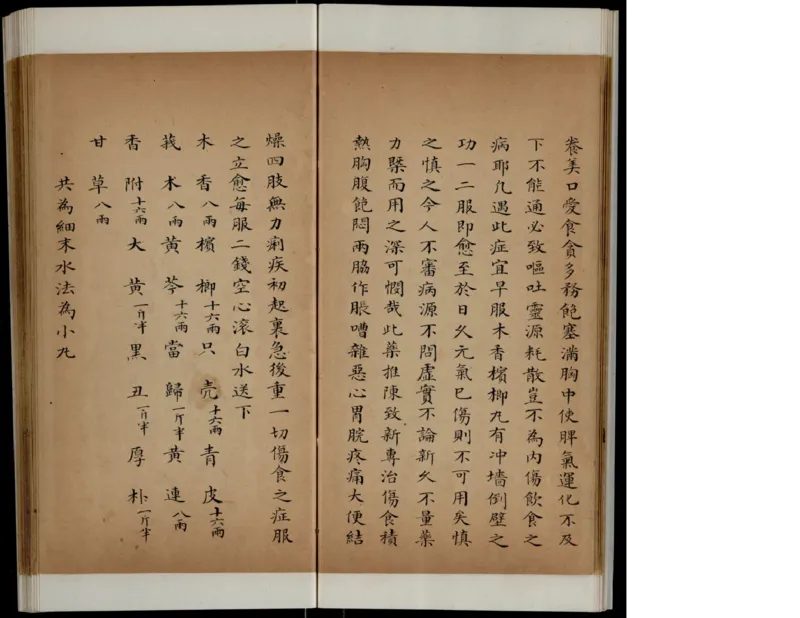 養美口愛食貪多務飽塞滿胸中使脾氣運化不及
下不能通必致嘔吐靈源耗散豈不為內傷飲食之
病耶凢遇此症宜早服木香檳榔丸有冲墻倒壁之
功一二服即愈至於日久元氣已傷則不可用矣慎
之慎之今人不審病源不問虛實不論新久不量藥
力槩而用之深可憫哉此藥推陳致新專治傷食積
熱胸腹飽悶兩脇作脹嘈雜惡心胃脘疼痛大便結
燥四肢無力痢疾初起裏急後重一切傷食之症服
之立愈每服二錢空心滾白水送下
木香八兩檳榔十六兩只壳十六兩青皮十六兩
莪木八兩黃芩十六兩當歸一斤半黃連八兩
香附十六兩大黃一斤半黑丑一斤半厚朴一斤半
甘草八兩
共為細末水法為小丸